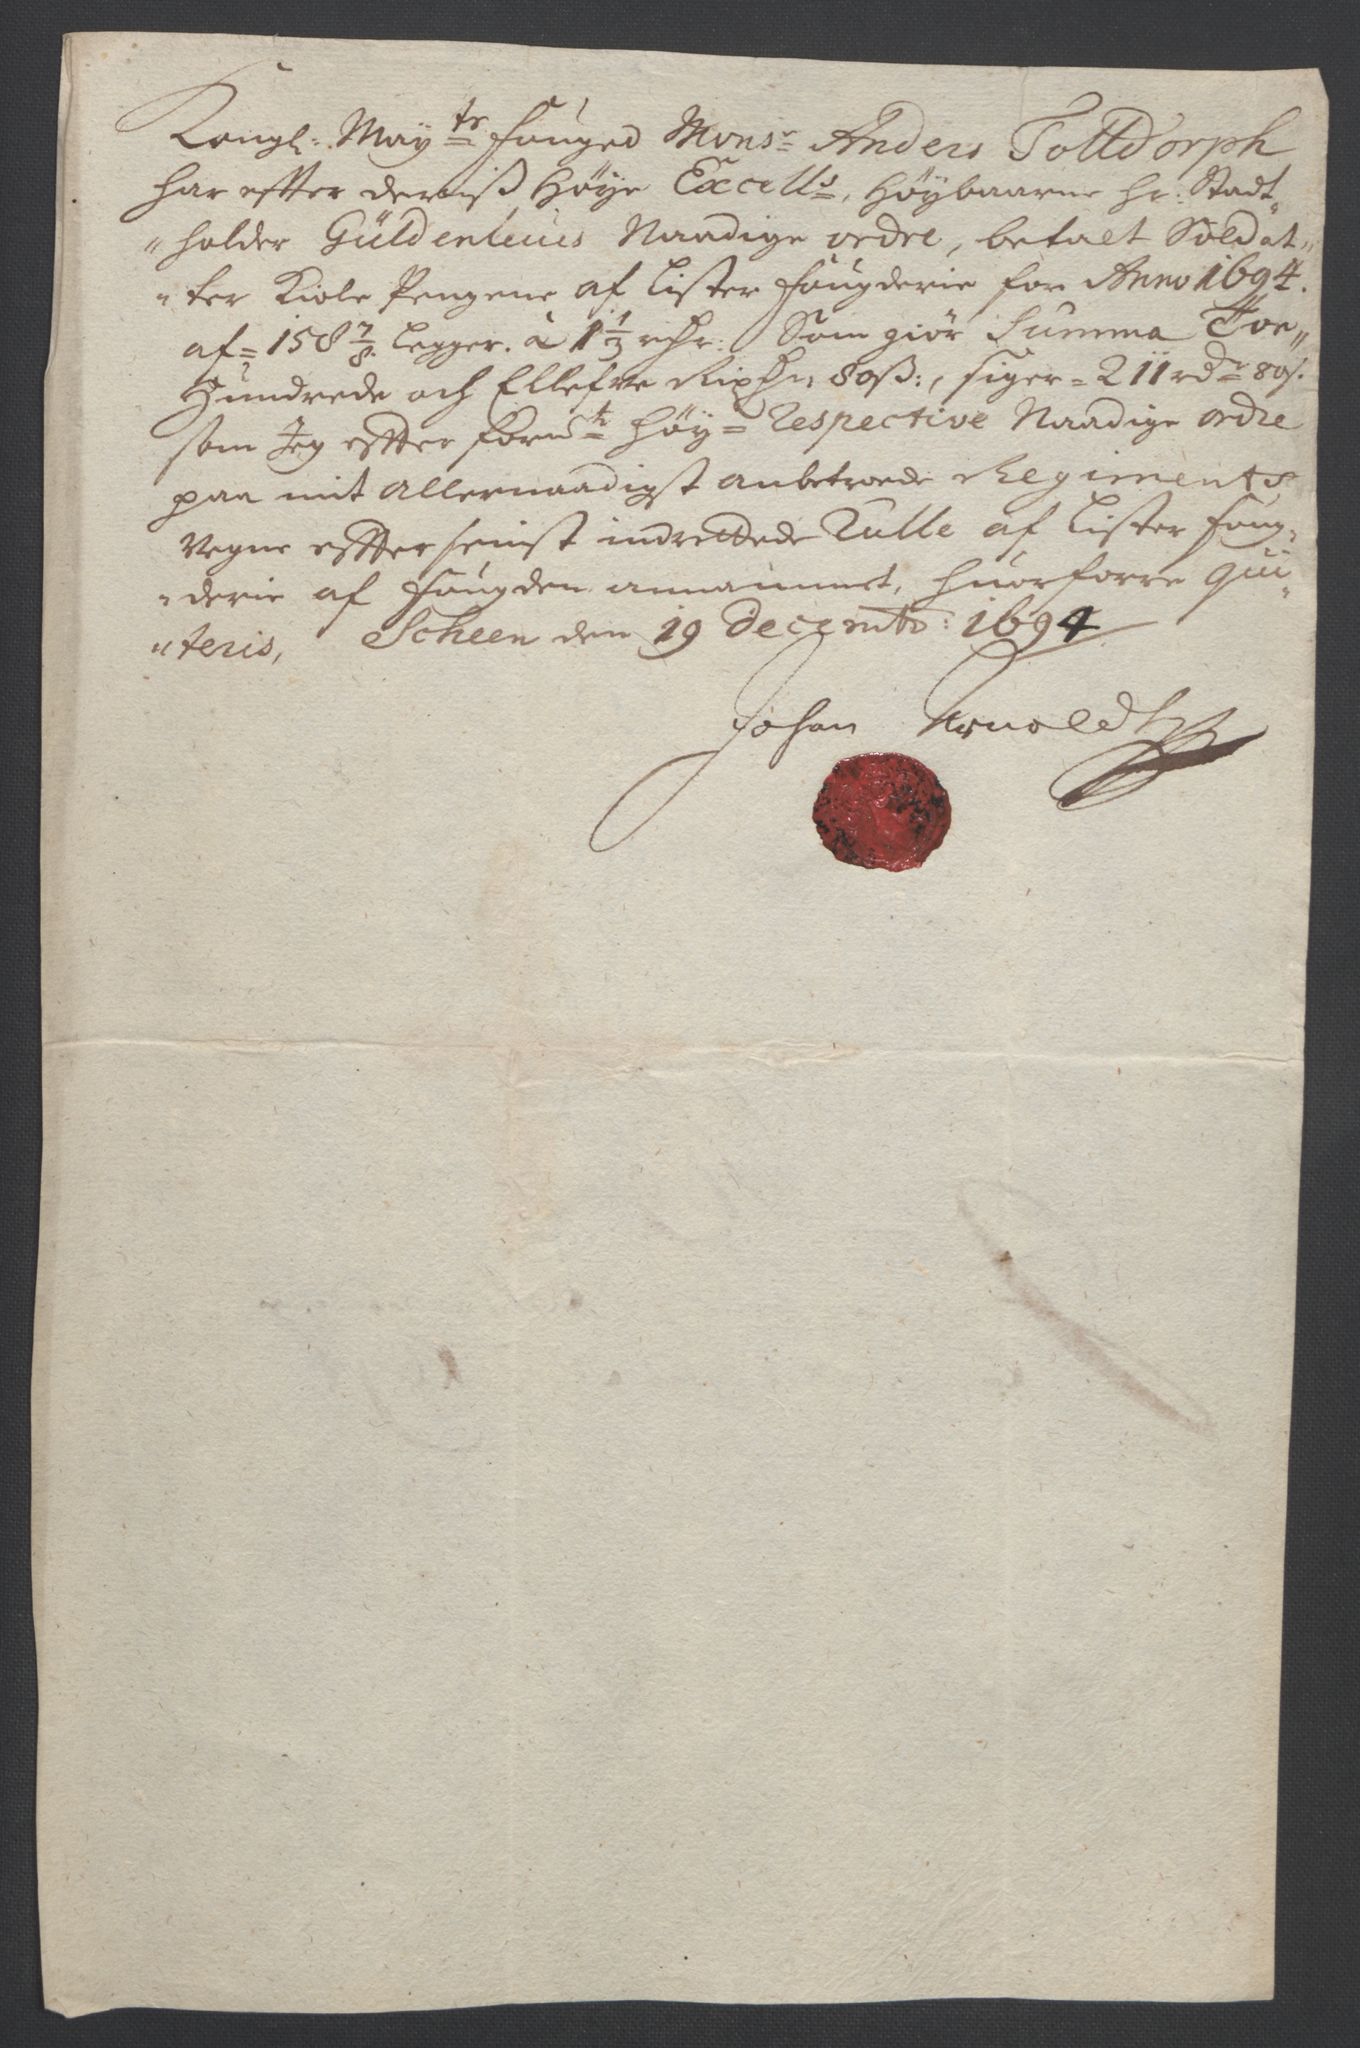 Kongl: May:ts fouged Mons:r Anders Tolldorph
har effter deriß Høye Excell:s, Høybaarne hr: Stadt„
„holder Güldenleues Naadige ordre, betalt Soldat„
„ter Kiole Pengene af Lister fougderie for Anno 1694.
af= 158 7/8 Legger. a 1 1/3 rdr: Som giør Summa Toe„
Hundrede och Ellefve Rixdr, 80ß:, siger= 211 rd:r 80ß.
som Jeg effter form:te høy= respective Naadige ordre
paa mit allernaadigst anbetroede Regiments
Vegne effter senist indrettede Rulle af Lister foug„
„derie af fougden annammet, huorforre qui„
„teris, Scheen den 19 Decembr: 1694
Johan Arnoldt